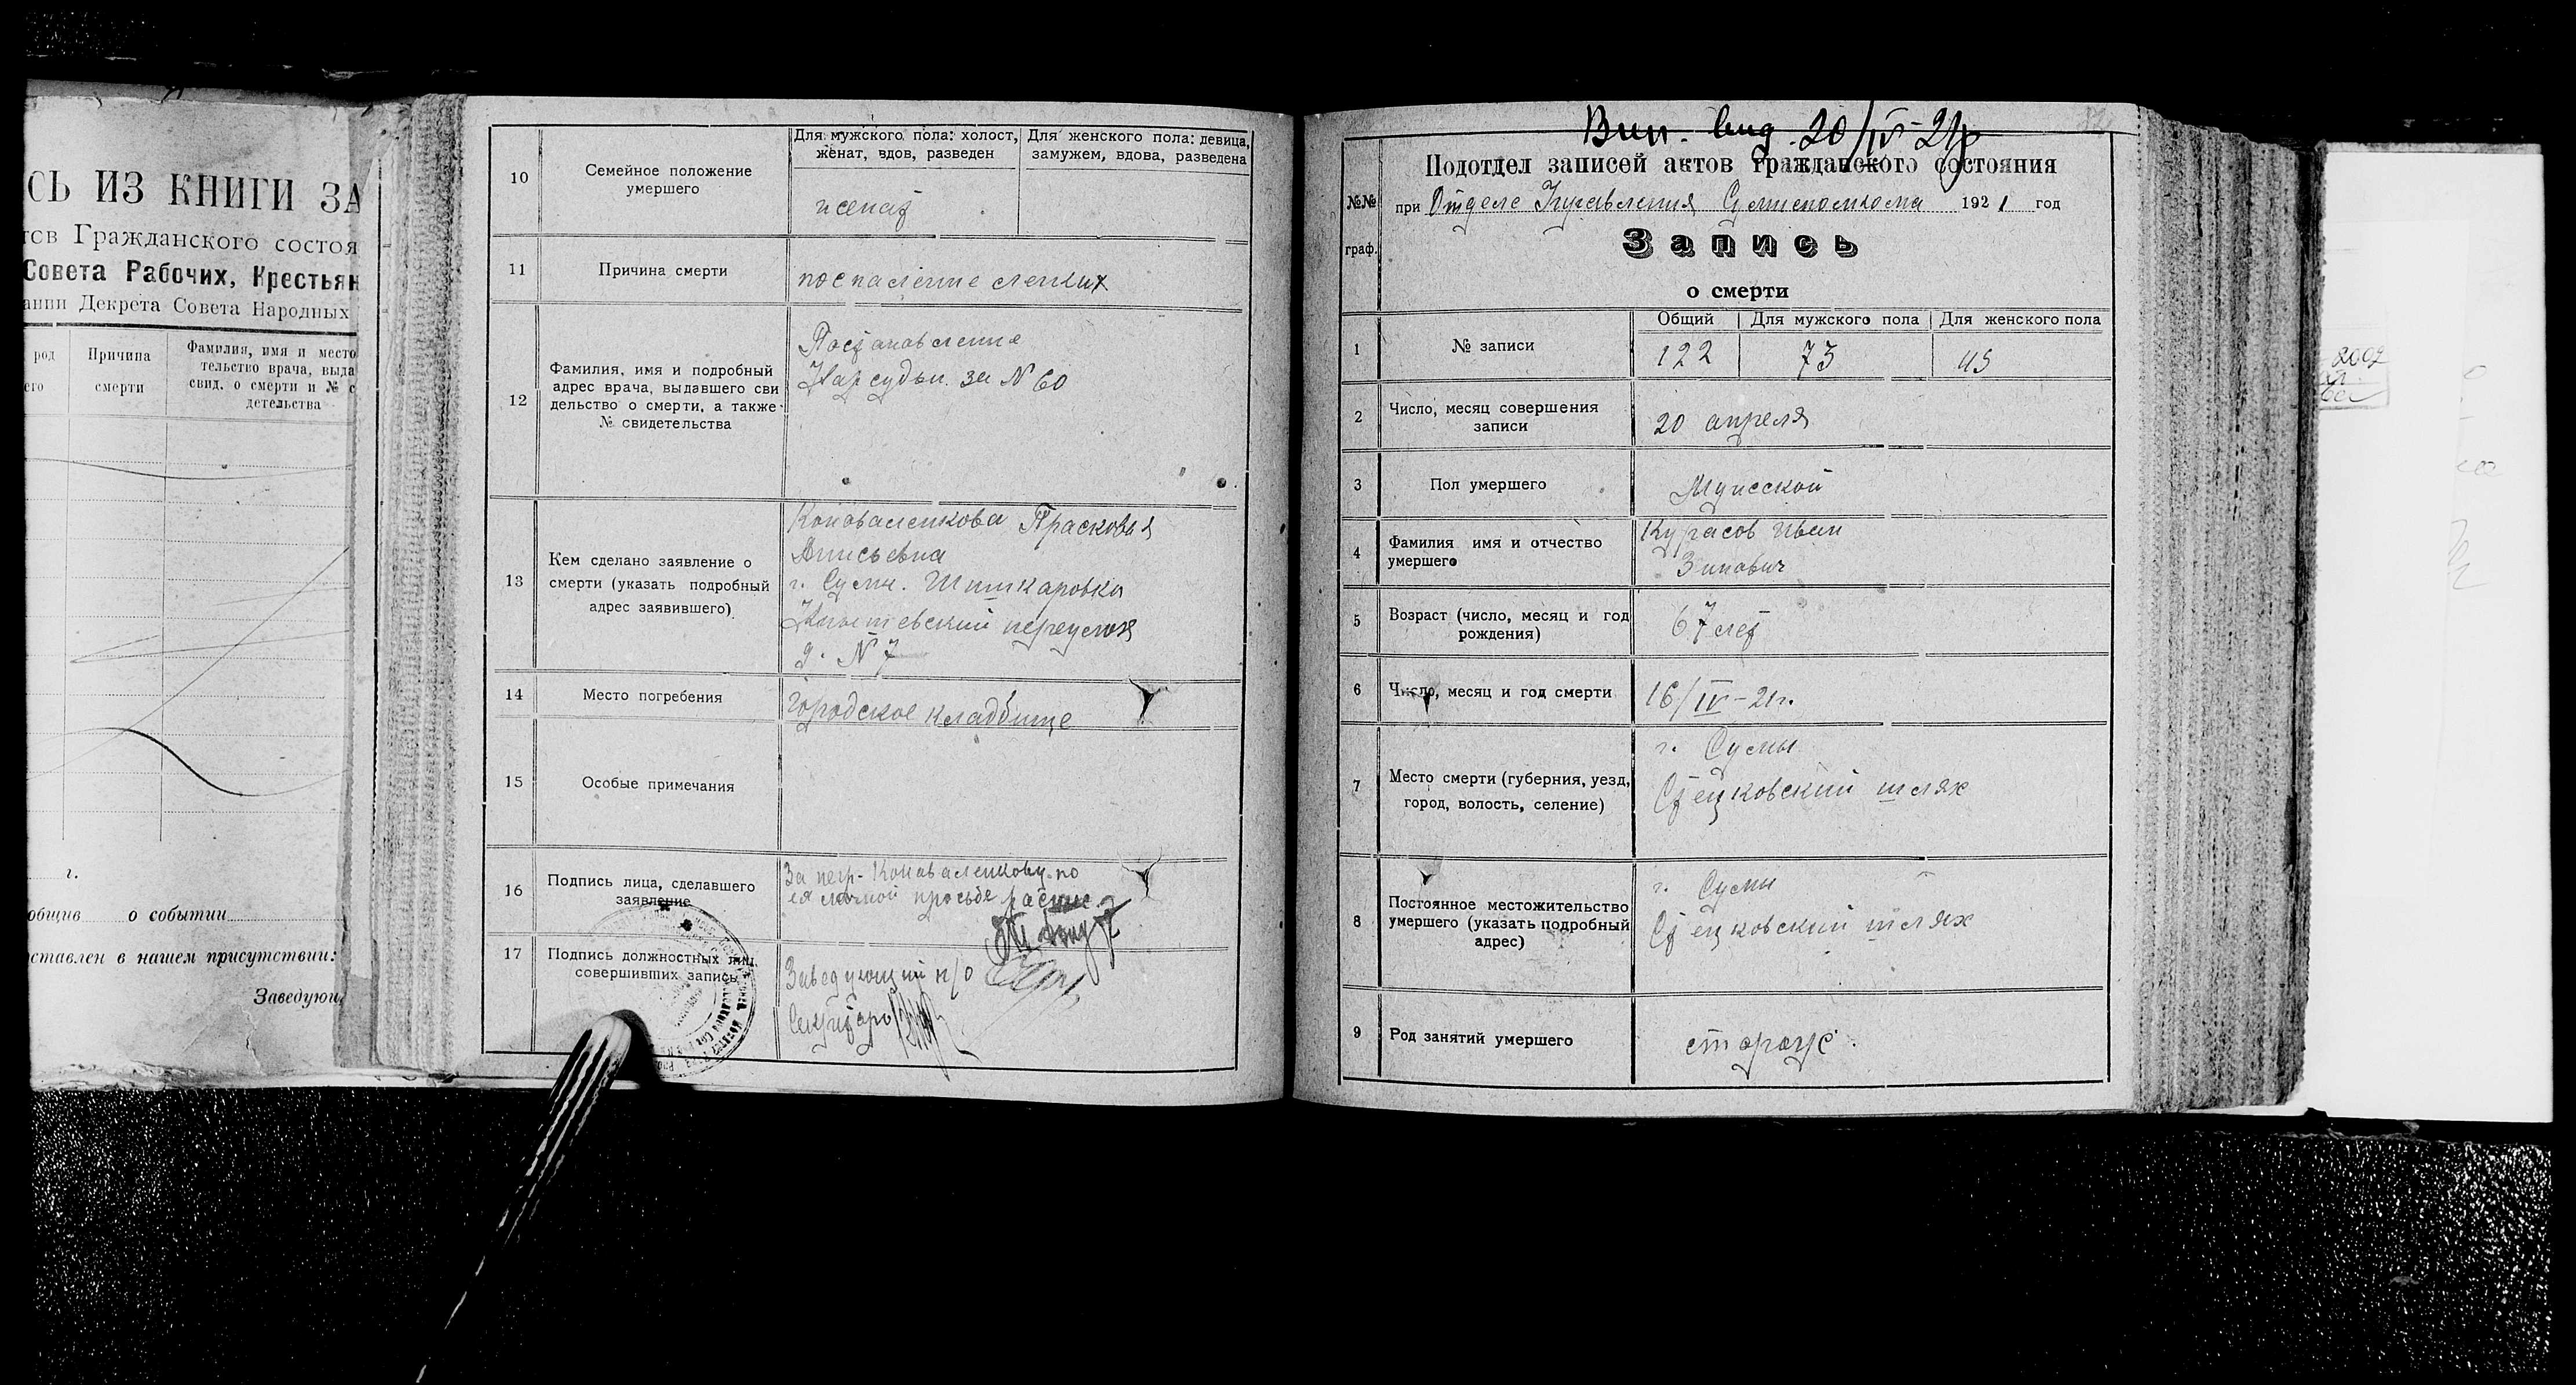 СЬ ИЗ КНИГИ ЗА
тов Гражданского состоя
Совета Рабочих, Крестьян
ании Декрета Совета Народных
род
его
Причина
смерти
Фамилия, имя и место
тельство врача, выда
свид. о смерти и № с
детельства
г.
общив о событии
ставлен в нашем присутствии:
Заведующ
10
Семейное положение
умершего
Для мужского пола: холост,
женат, вдов, разведен
Для женского пола: девица,
замужем, вдова, разведена
женат
11
Причина смерти
воспаление легких
12
Фамилия, имя и подробный
адрес врача, выдавшего сви
дельство о смерти, а также
№ свидетельства
Постановление
Нарсудьи за № 60
13
Кем сделано заявление о
смерти (указать подробный
адрес заявившего)
Коноваленкова Прасковья
Анисьевна
г. Сумы. Шишкаровка
переулок
д. № 7
14
Место погребения
городское кладбище
15
Особые примечания
16
Подпись лица, сделавшего
заявление
За негр. Коноваленкову по
ея личной просьбе распис.
17
Подпись должностных лиц
совершивших запись
Заведующий п/о
Секретарь
Вып. 20/IV-21г
Подотдел записей актов гражданского состояния
№№
граф.
при Отделе Управления Сумисполкома 1921 год
Запись
о смерти
1
№ записи
Общий
Для мужского пола
Для женского пола
122
73
45
2
Число, месяц совершения
записи
20 апреля
3
Пол умершего
Мужской
4
Фамилия имя и отчество
умершего
Курасов Иван
Зинович
5
Возраст (число, месяц и год
рождения)
67 лет
6
Число, месяц и год смерти
16/IV-21г.
7
Место смерти (губерния, уезд,
город, волость, селение)
г. Сумы
Стецковский шлях
8
Постоянное местожительство
умершего (указать подробный
адрес)
г. Сумы
Стецковский шлях
9
Род занятий умершего
сторож
2002